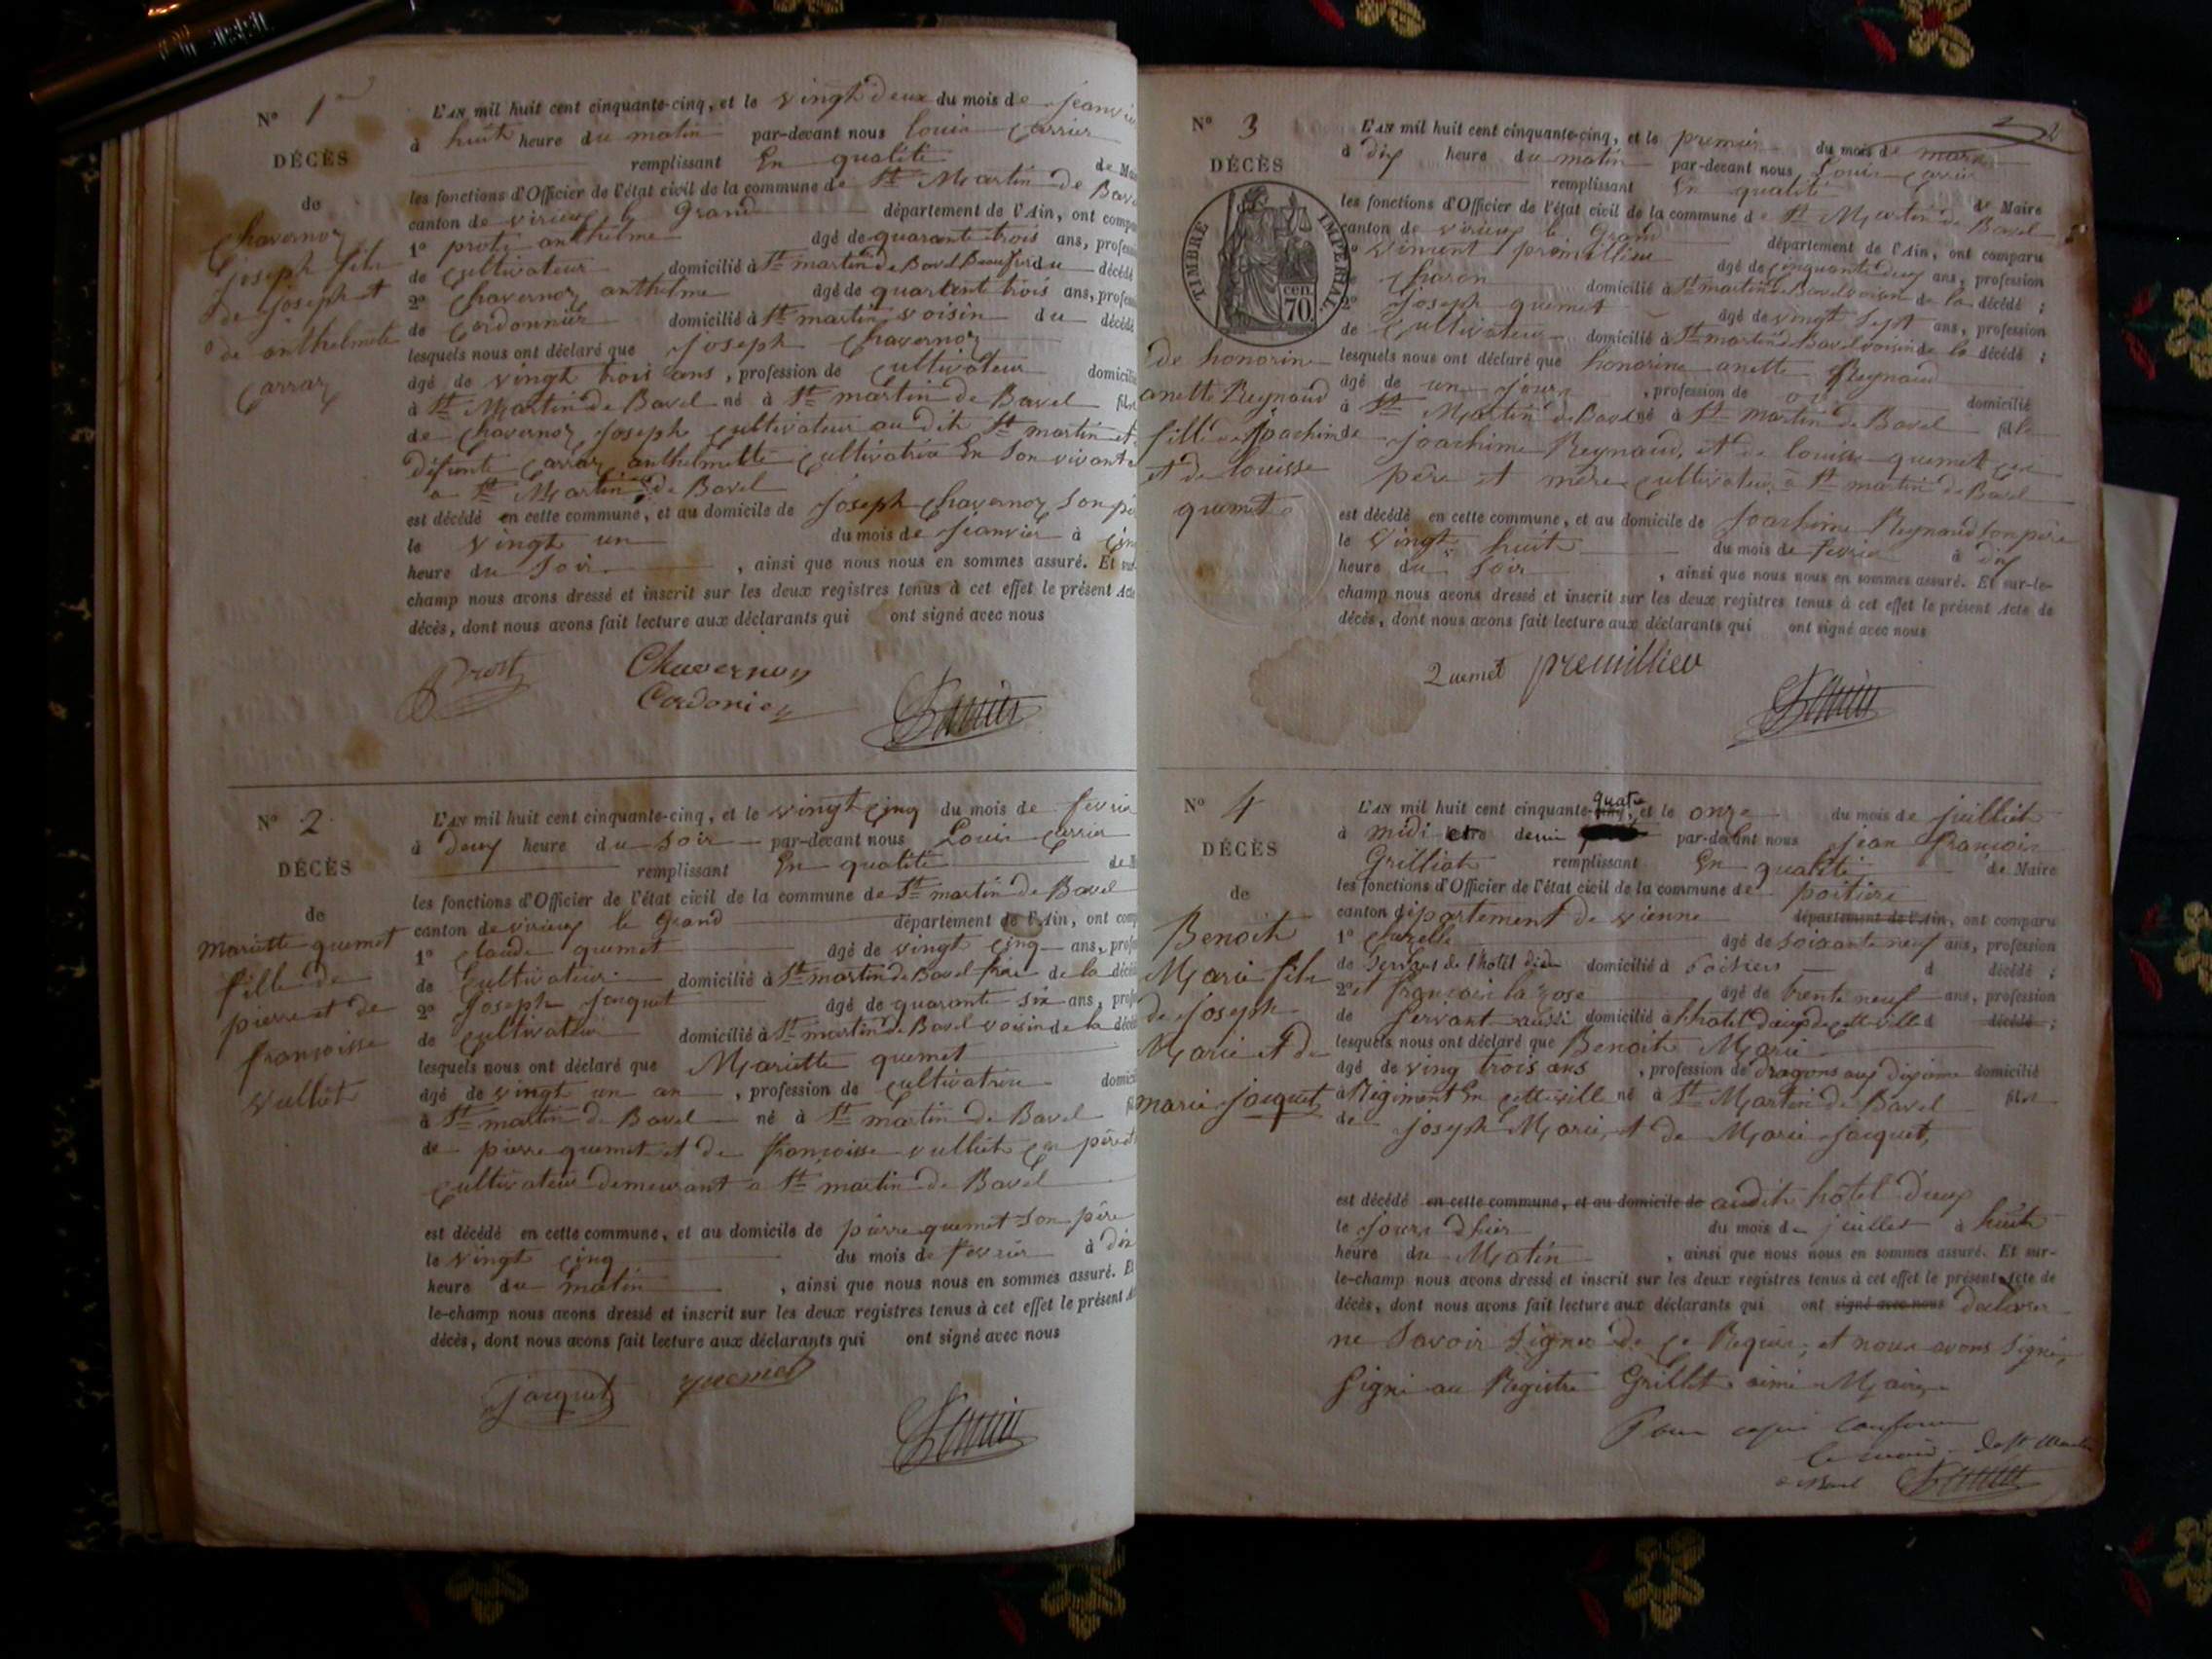 N° 1
DÉCÈS
de
Chavernoz
joseph fils
de joseph et
de anthelmette
Carraz
L'AN mil huit cent cinquante-cinq, et le vingt deux du mois de jeanvier
à huit heure du matin par-devant nous louis Carrier
remplissant En qualité de Mai
les fonctions d'Officier de l'état civil de la commune de St Martin de Bavel
canton de virieux le Grand département de l'Ain, ont comparu
1° anthelme âgé de quarante trois ans, profession
de Cultivateur domicilié à St martin de Bavel du décédé
2° Chavernoz anthelme âgé de quarante trois ans, profession
de Cordonnier domicilié à St martin voisin du décédé
lesquels nous ont déclaré que Joseph Chavernoz
âgé de vingt trois ans, profession de Cultivateur domicilié
à St Martin de Bavel né à St martin de Bavel fils
de Chavernoz Joseph Cultivateur au dit St martin et
défunte Carraz anthelmette Cultivatrice En Son vivant
a St Martin de Bavel
est décédé en cette commune, et au domicile de Joseph Chavernoz Son pè
le vingt un du mois de Jeanvier à Cinq
heure du Soir, ainsi que nous nous en sommes assuré. Et sur-
champ nous avons dressé et inscrit sur les deux registres tenus à cet effet le présent Acte
décès, dont nous avons fait lecture aux déclarants qui ont signé avec nous
Prost Chavernoz
Cordonier
N° 2
DÉCÈS
de
Mariette quemet
fille de
pierre et de
françoisse
vulliet
L'AN mil huit cent cinquante-cinq, et le vingt Cinq du mois de fevrier
à deux heure du Soir par-devant nous Louis Carrier
remplissant En qualité de M
les fonctions d'Officier de l'état civil de la commune de St martin de Bavel
canton de virieux le Grand département de l'Ain, ont comp
1° Claude quemet âgé de vingt Cinq ans, profes
de Cultivateur domicilié à St martin de Bavel frère de la décéd
2° Joseph Jacquet âgé de quarante Six ans, profes
de Cultivateur domicilié à St martin de Bavel voisin de la décéd
lesquels nous ont déclaré que Mariette quemet
âgé de vingt un an, profession de Cultivatrice domici
à St martin de Bavel né à St martin de Bavel fil
de pierre quemet et de françoisse vulliet Ces père et
Cultivateur demeurant a St martin de Bavel
est décédé en cette commune, et au domicile de pierre quemet Son père
le vingt Cinq du mois de fevrier à dix
heure du matin, ainsi que nous nous en sommes assuré. Et
le-champ nous avons dressé et inscrit sur les deux registres tenus à cet effet le présent A
décès, dont nous avons fait lecture aux déclarants qui ont signé avec nous
Jacquet quemet
2
N° 3
DÉCÈS
TIMBRE IMPERIAL
70 cen.
de honorine
anette Reynaud
fille de Joachim
et de louisse
quemet
L'AN mil huit cent cinquante-cinq, et le premier du mois de mars
à dix heure du matin par-devant nous Louis Carrier
remplissant En qualité de Maire
les fonctions d'Officier de l'état civil de la commune de St Martin de Bavel
canton de virieux le Grand département de l'Ain, ont comparu
1° viment premillieu âgé de Cinquante deux ans, profession
de Charon domicilié à St martin de Bavel voisin de la décédé ;
2° Joseph quemet âgé de vingt Sept ans, profession
de Cultivateur domicilié à St martin de Bavel voisin de la décédé ;
lesquels nous ont déclaré que honorine anette Reynaud
âgé de un Jours, profession de domicilié
à St Martin de Bavel né à St martin de Bavel fille
de Joachime Reynaud, et de louisse quemet Ces
père et mère Cultivateur à St martin de Bavel
est décédé en cette commune, et au domicile de Joachime Reynaud Son père
le vingt huit du mois de fevrier à dix
heure du Soir, ainsi que nous nous en sommes assuré. Et sur-le-
champ nous avons dressé et inscrit sur les deux registres tenus à cet effet le présent Acte de
décès, dont nous avons fait lecture aux déclarants qui ont signé avec nous
Quemet premillieu
N° 4
DÉCÈS
de
Benoit
Marie fils
de Joseph
Marie et de
marie jacquet
L'AN mil huit cent cinquante-cinq quatre, et le onze du mois de juilliet
à midi et demi par-devant nous jean françois
Grilliet remplissant En qualité de Maire
les fonctions d'Officier de l'état civil de la commune de poitiers
canton département de vienne département de l'Ain, ont comparu
1° âgé de soixante neuf ans, profession
de Servant de l'hotel dieu domicilié à Poitiers d décédé ;
2° et françois la rose âgé de trente neuf ans, profession
de Servant aussi domicilié à l'hotel dieux de Cette ville d décédé ;
lesquels nous ont déclaré que Benoit Marie
âgé de ving trois ans, profession de dragons aux dixième domicilié
à Régiment En Cette ville né à St Martin de Bavel fils
de Joseph Marie, et de Marie Jacquet,
est décédé en cette commune, et au domicile de audit hôtel dieux
le jours d'hier du mois de juillet à huit
heure du Matin, ainsi que nous nous en sommes assuré. Et sur-
le-champ nous avons dressé et inscrit sur les deux registres tenus à cet effet le présent Acte de
décès, dont nous avons fait lecture aux déclarants qui ont signé avec nous declarer
ne Savoir Signer de Ce Requis, et nous avons Signé,
Signé au Registre Grilliet aimé Maire
Pour copie conforme
le maire de St Martin
de Bavel